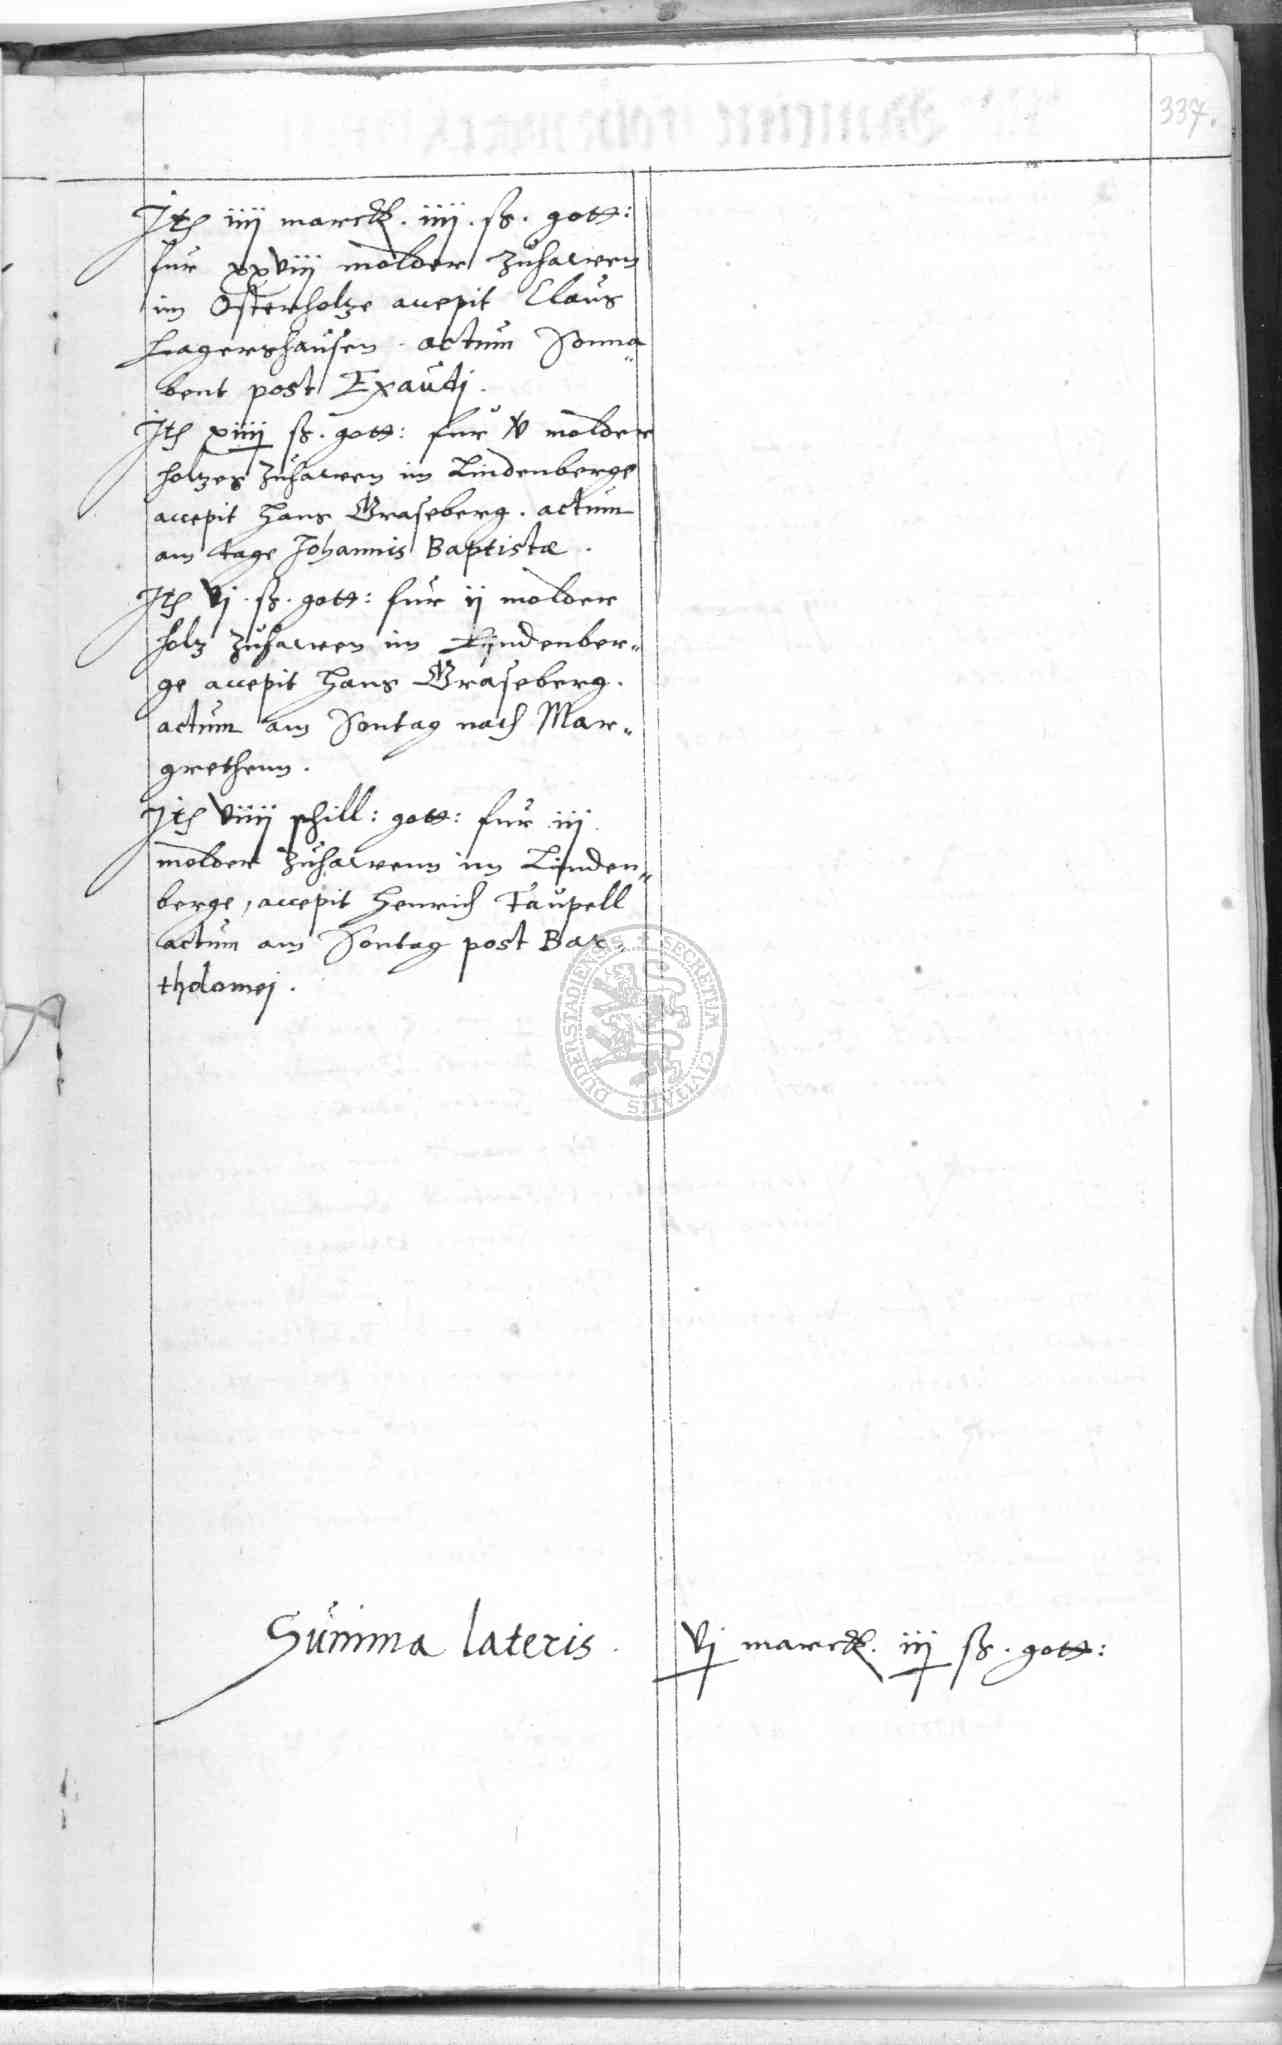 337.
Itē iiij marckß. iiij. ß. gott:
fur xxviij molder zuhawen
im Osterholtze accepit Claus
Hagershausen. actum Sonna„
bent post Exaudi.
Itē xiiij ß. gott: fur v molder
holtzes zuhawen im Lindenberge
accepit Hans Graseberg. actum
am tage Johannis Baptistæ.
Itē vj. ß. gott: fur ij molder
holtz zuhawen im Lindenber„
ge accepit Hans Graseberg.
actum am Sontag nach Mar„
grethenn.
Itē viiij schill: gott: fur iij
molder zuhawenn im Linden„
berge, accepit Henrich Taupell
actum am Sontag post Bar„
tholomej.
SECRETUM CIVITATIS DUDERSTADIENSIS
Summa lateris. vj marckß. iij ß. gott: